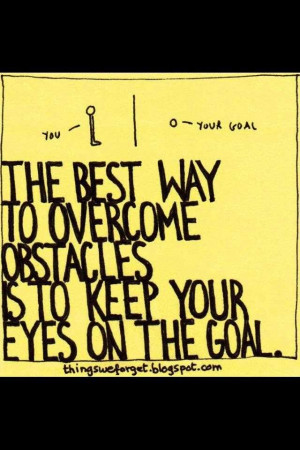 YOU
O - YOUR GOAL
THE BEST WAY
TO OVERCOME
OBSTACLES
IS TO KEEP YOUR
EYES ON THE GOAL.
thingsweforget.blogspot.com